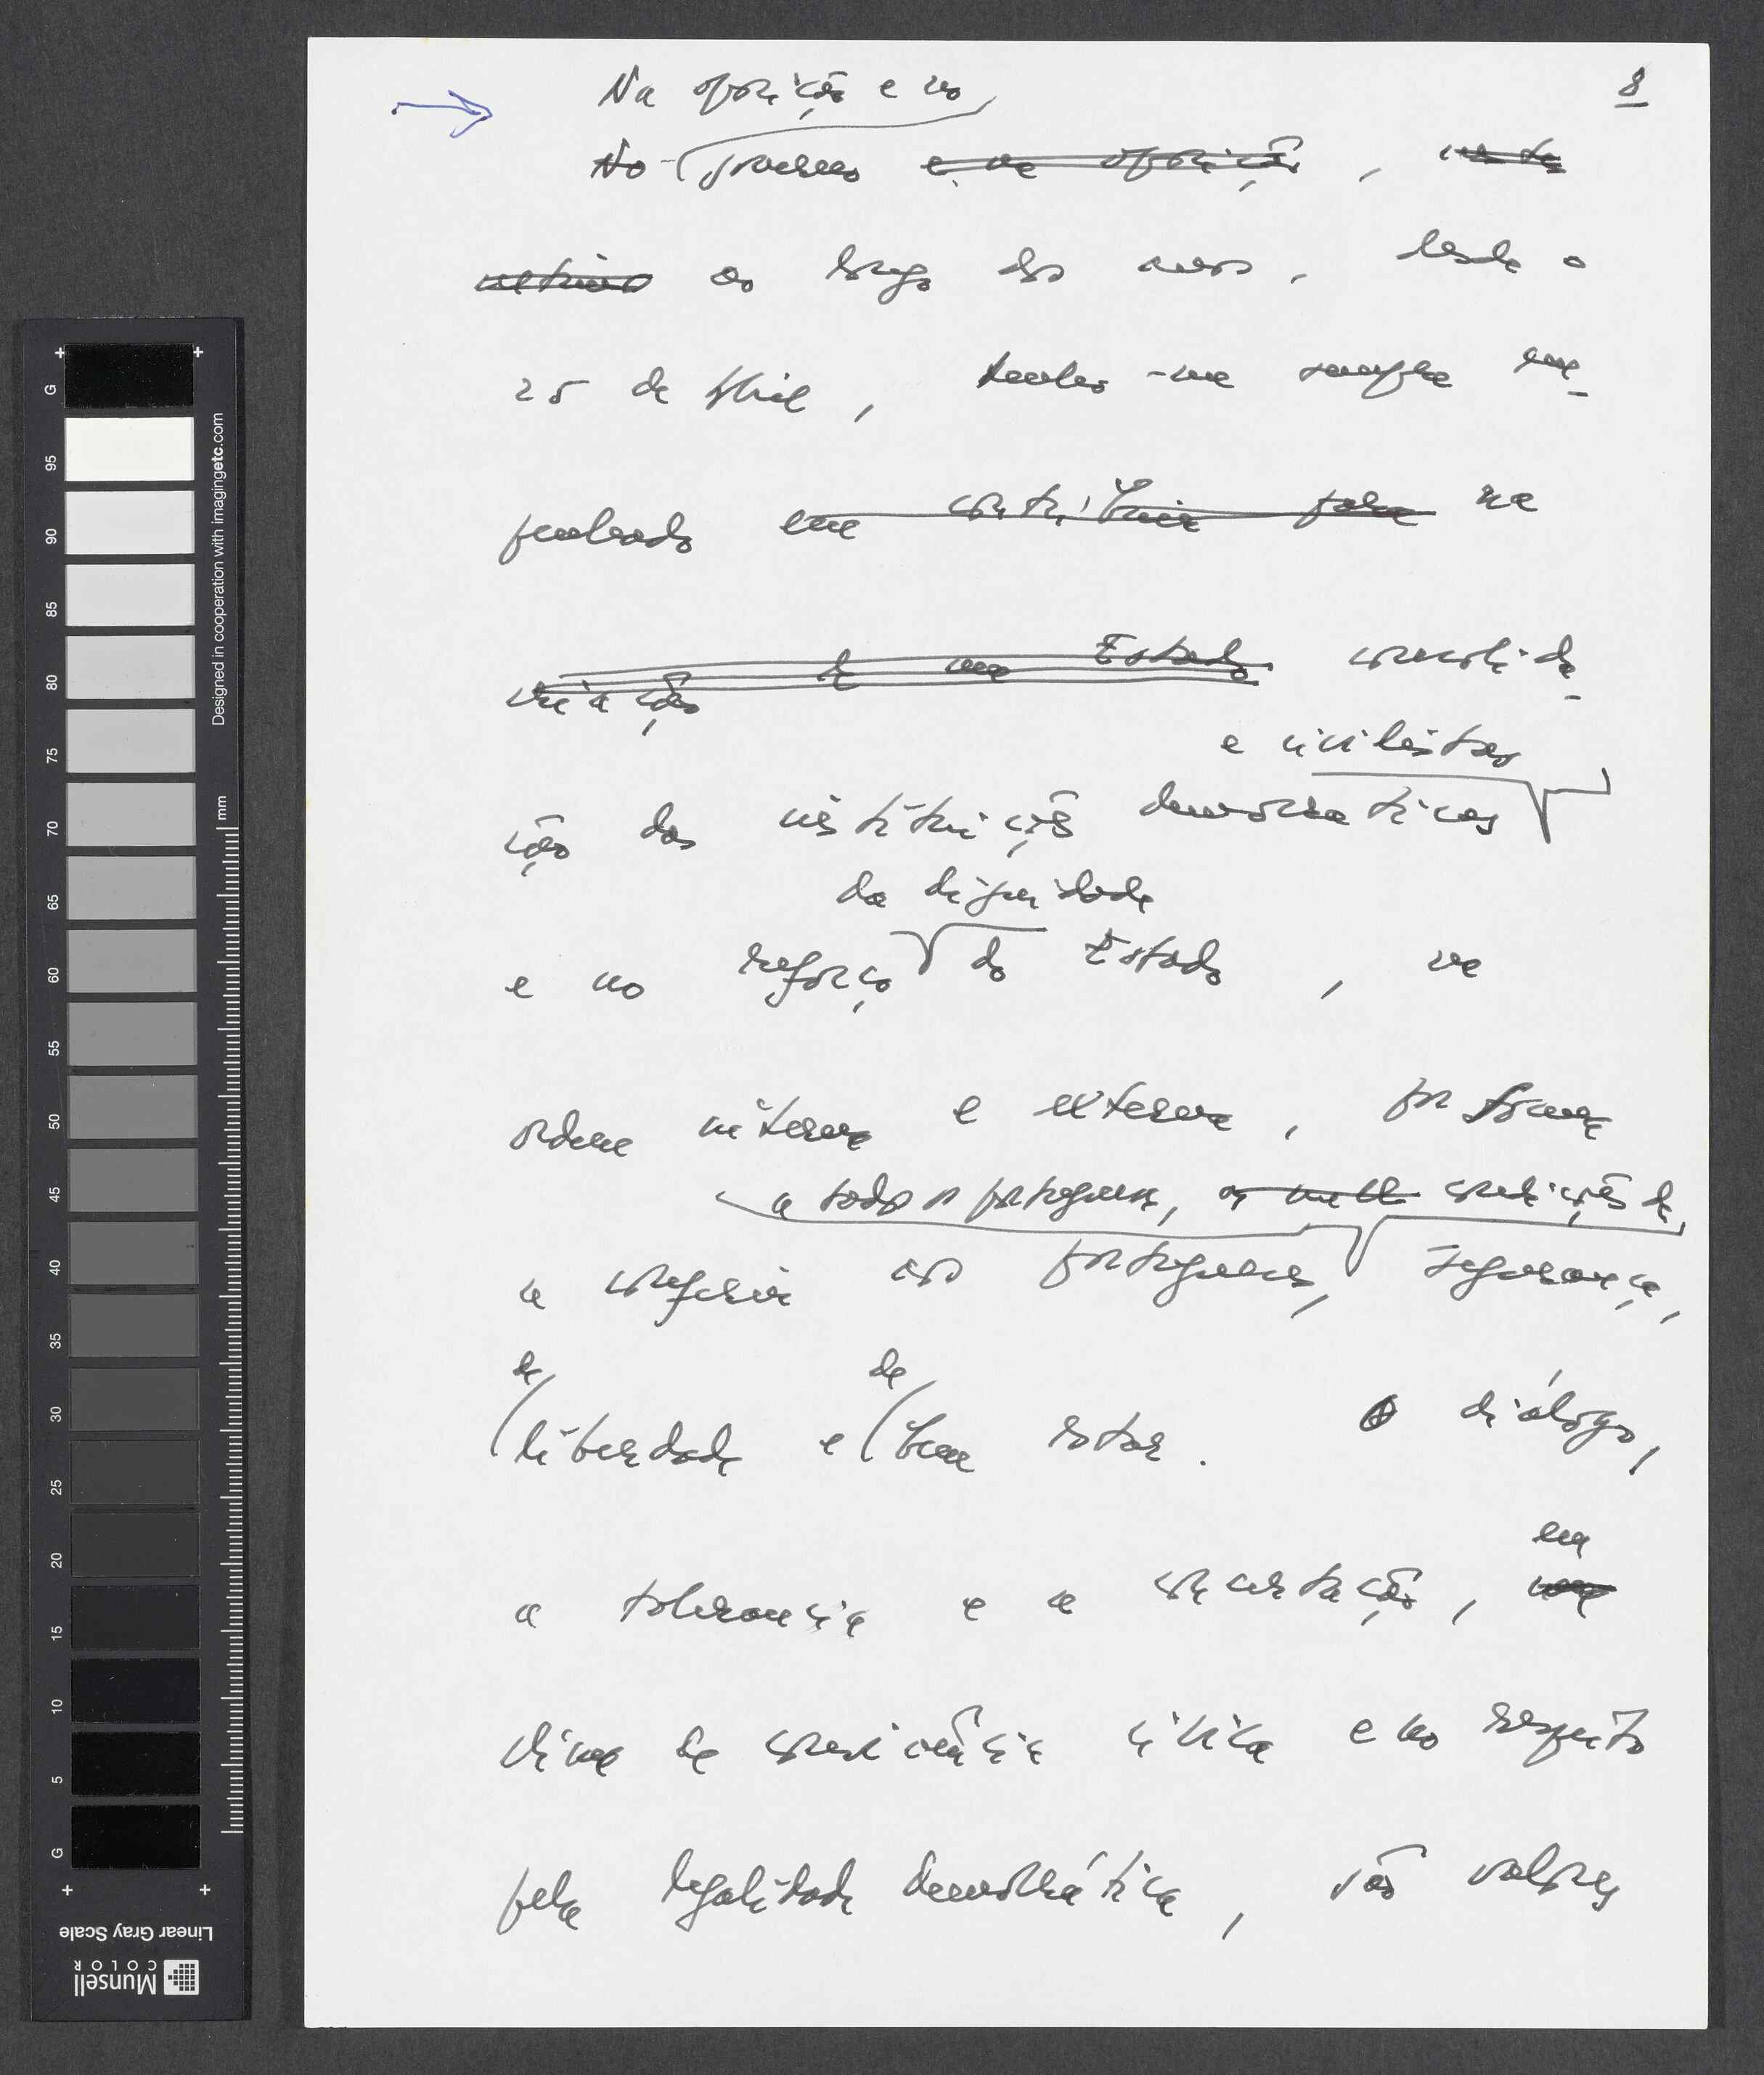 8
Na oposição e no
No Governo e na oposição,
ao longo dos anos, desde o
25 de Abril, tenho-me sempre em-
penhado em contribuir para na
criação de um Estado consolida-
e civilistas
ção das instituições democráticas
da dignidade
e no reforço do Estado, na
ordem interna e externa, por forma
a todos os portugueses, condições de
a conferir aos portugueses, segurança,
de de
liberdade e bem estar. O diálogo,
em
a tolerancia e a concertação,
clima de convivência cívica e no respeito
pela legalidade democrática, são valores
+ +
G
95
90
85
80
75
70
65
60
55
50
45
40
35
30
25
20
15
10
5
G
+ +
Designed in cooperation with imagingetc.com
mm
Linear Gray Scale
Munsell
COLOR